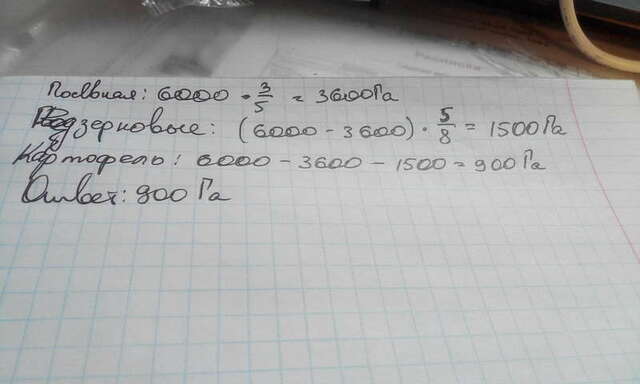 Посевная: 6000 · 3/5 = 3600 Га
Под зерновые: (6000 - 3600) · 5/8 = 1500 Га
Картофель: 6000 - 3600 - 1500 = 900 Га
Ответ: 900 Га